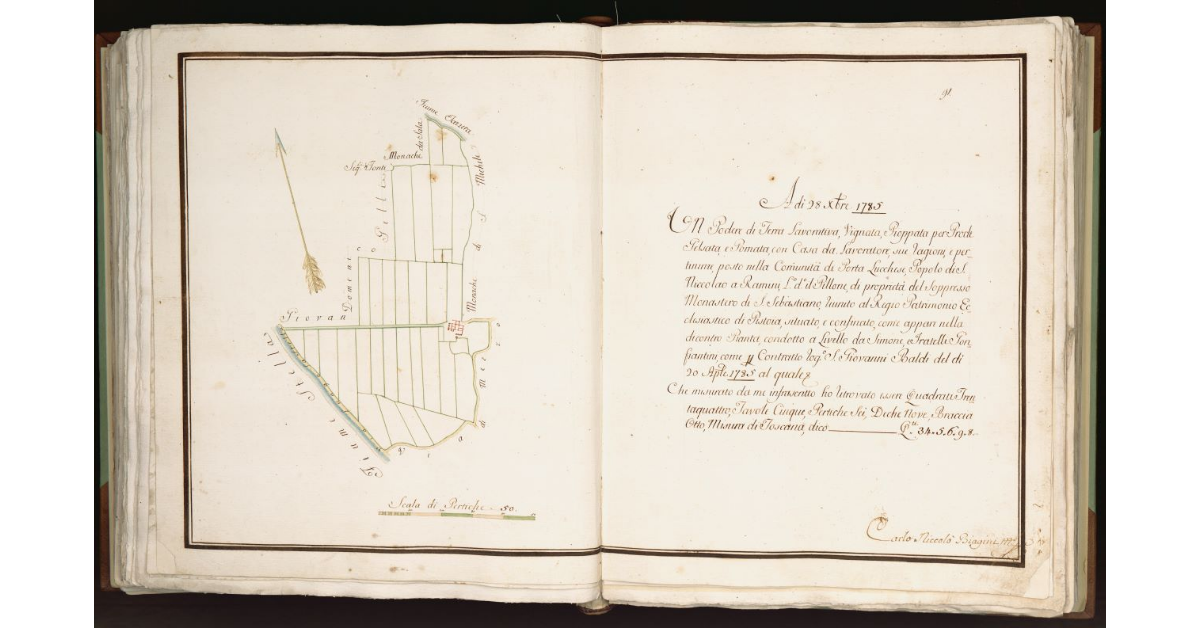 Fiume Ombrone
Monache da Sala
Sig.ri Tonti
Monache di S. Michele
Pilli
Domenico
Piovan
Fiume Stella
Via di Mezzo
Scala di Pertiche 50.
91
A di 28 Xbre 1785
Un Podere di Terra Lavorativa, Vignata, Pioppata per Prode
Gelsata, e Pomata, con Casa da Lavoratore, sue ragioni, e per-
tinenze posto nella Comunità di Porta Lucchese, Popolo di S.
Niccolao a Ramini, L.º d.º il Pillone, di proprietà del Soppresso
Monastero di S. Sebastiano, riunito al Regio Patrimonio Ec-
clesiastico di Pistoia, situato, e confinato, come appare nella
dicontro Pianta, condotto a Livello da Simone, e Fratelli
come Contratto Rog.º S. Giovanni Baldi del di
20 Aple 1785 al quale
Che misurato da me infrascritto ho ritrovato essere Quadrati Tren
taquattro, Tavole Cinque, Pertiche Sei, Deche Nove, Braccia
Otto, Misura di Toscana, dico Q.ti 34.5.6.9.8.
Carlo Niccolò Biagini